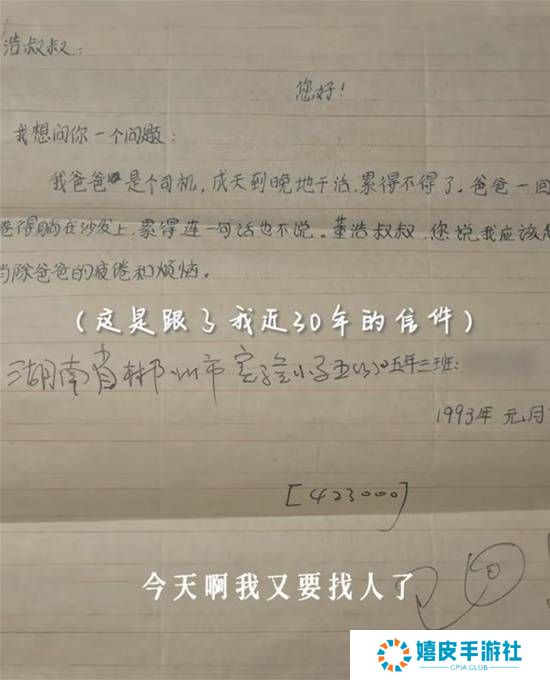 浩叔叔:
您好!
我想问你一个问题:
我爸爸是个司机,成天到晚地干活,累得不得了。爸爸一回
倦得躺在沙发上,累得连一句话也不说。董浩叔叔,您说我应该怎
当除爸爸的疲倦和烦恼。
(这是跟了我近30年的信件)
湖南省郴州市实验小学五(3)五年三班:
1993年 元月
[423000]
今天啊我又要找人了
嬉皮手游社
CPIA CLUB